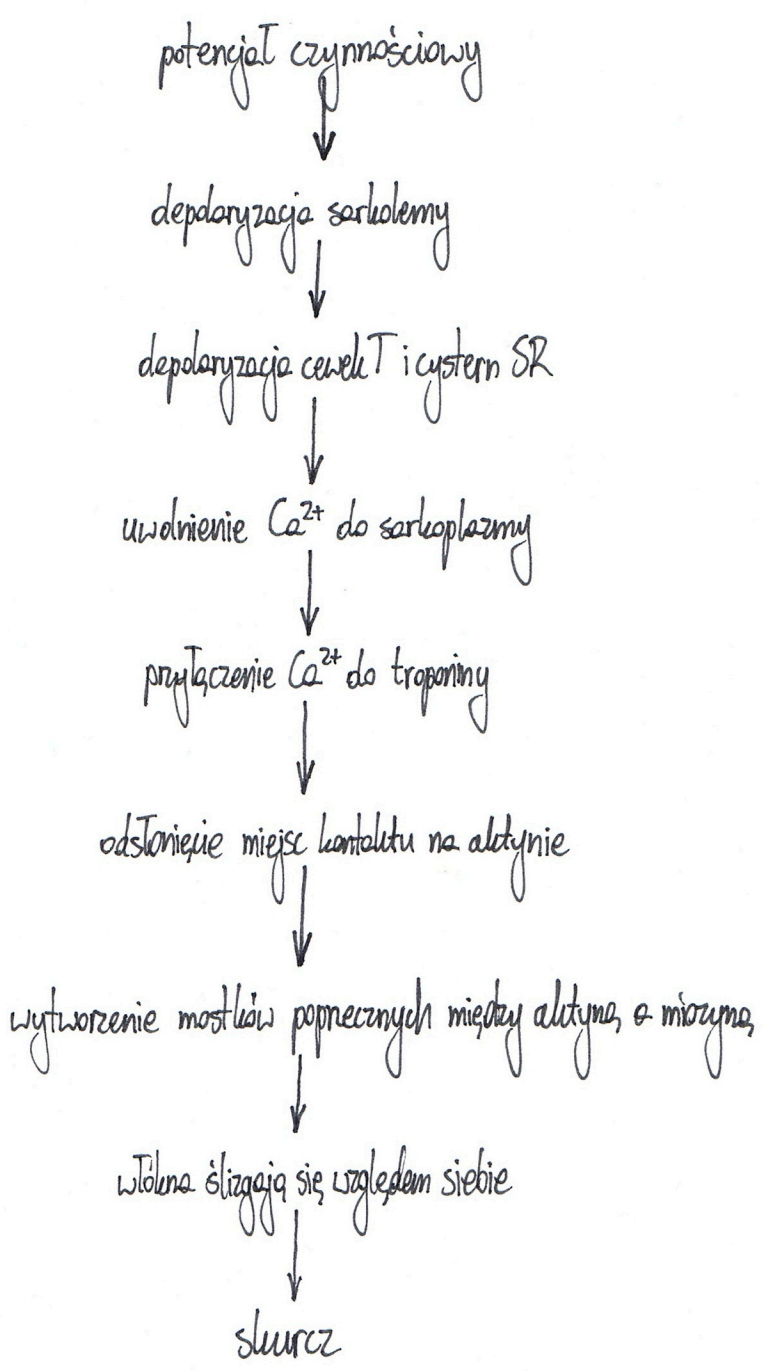 potencjał czynnościowy
depolaryzacja sarkolemy
depolaryzacja cewek T i cystern SR
uwolnienie Ca²⁺ do sarkoplazmy
przyłączenie Ca²⁺ do troponiny
odsłonięcie miejsc kontaktu na aktynie
wytworzenie mostków poprzecznych między aktyną a miozyną
włókna ślizgają się względem siebie
skurcz